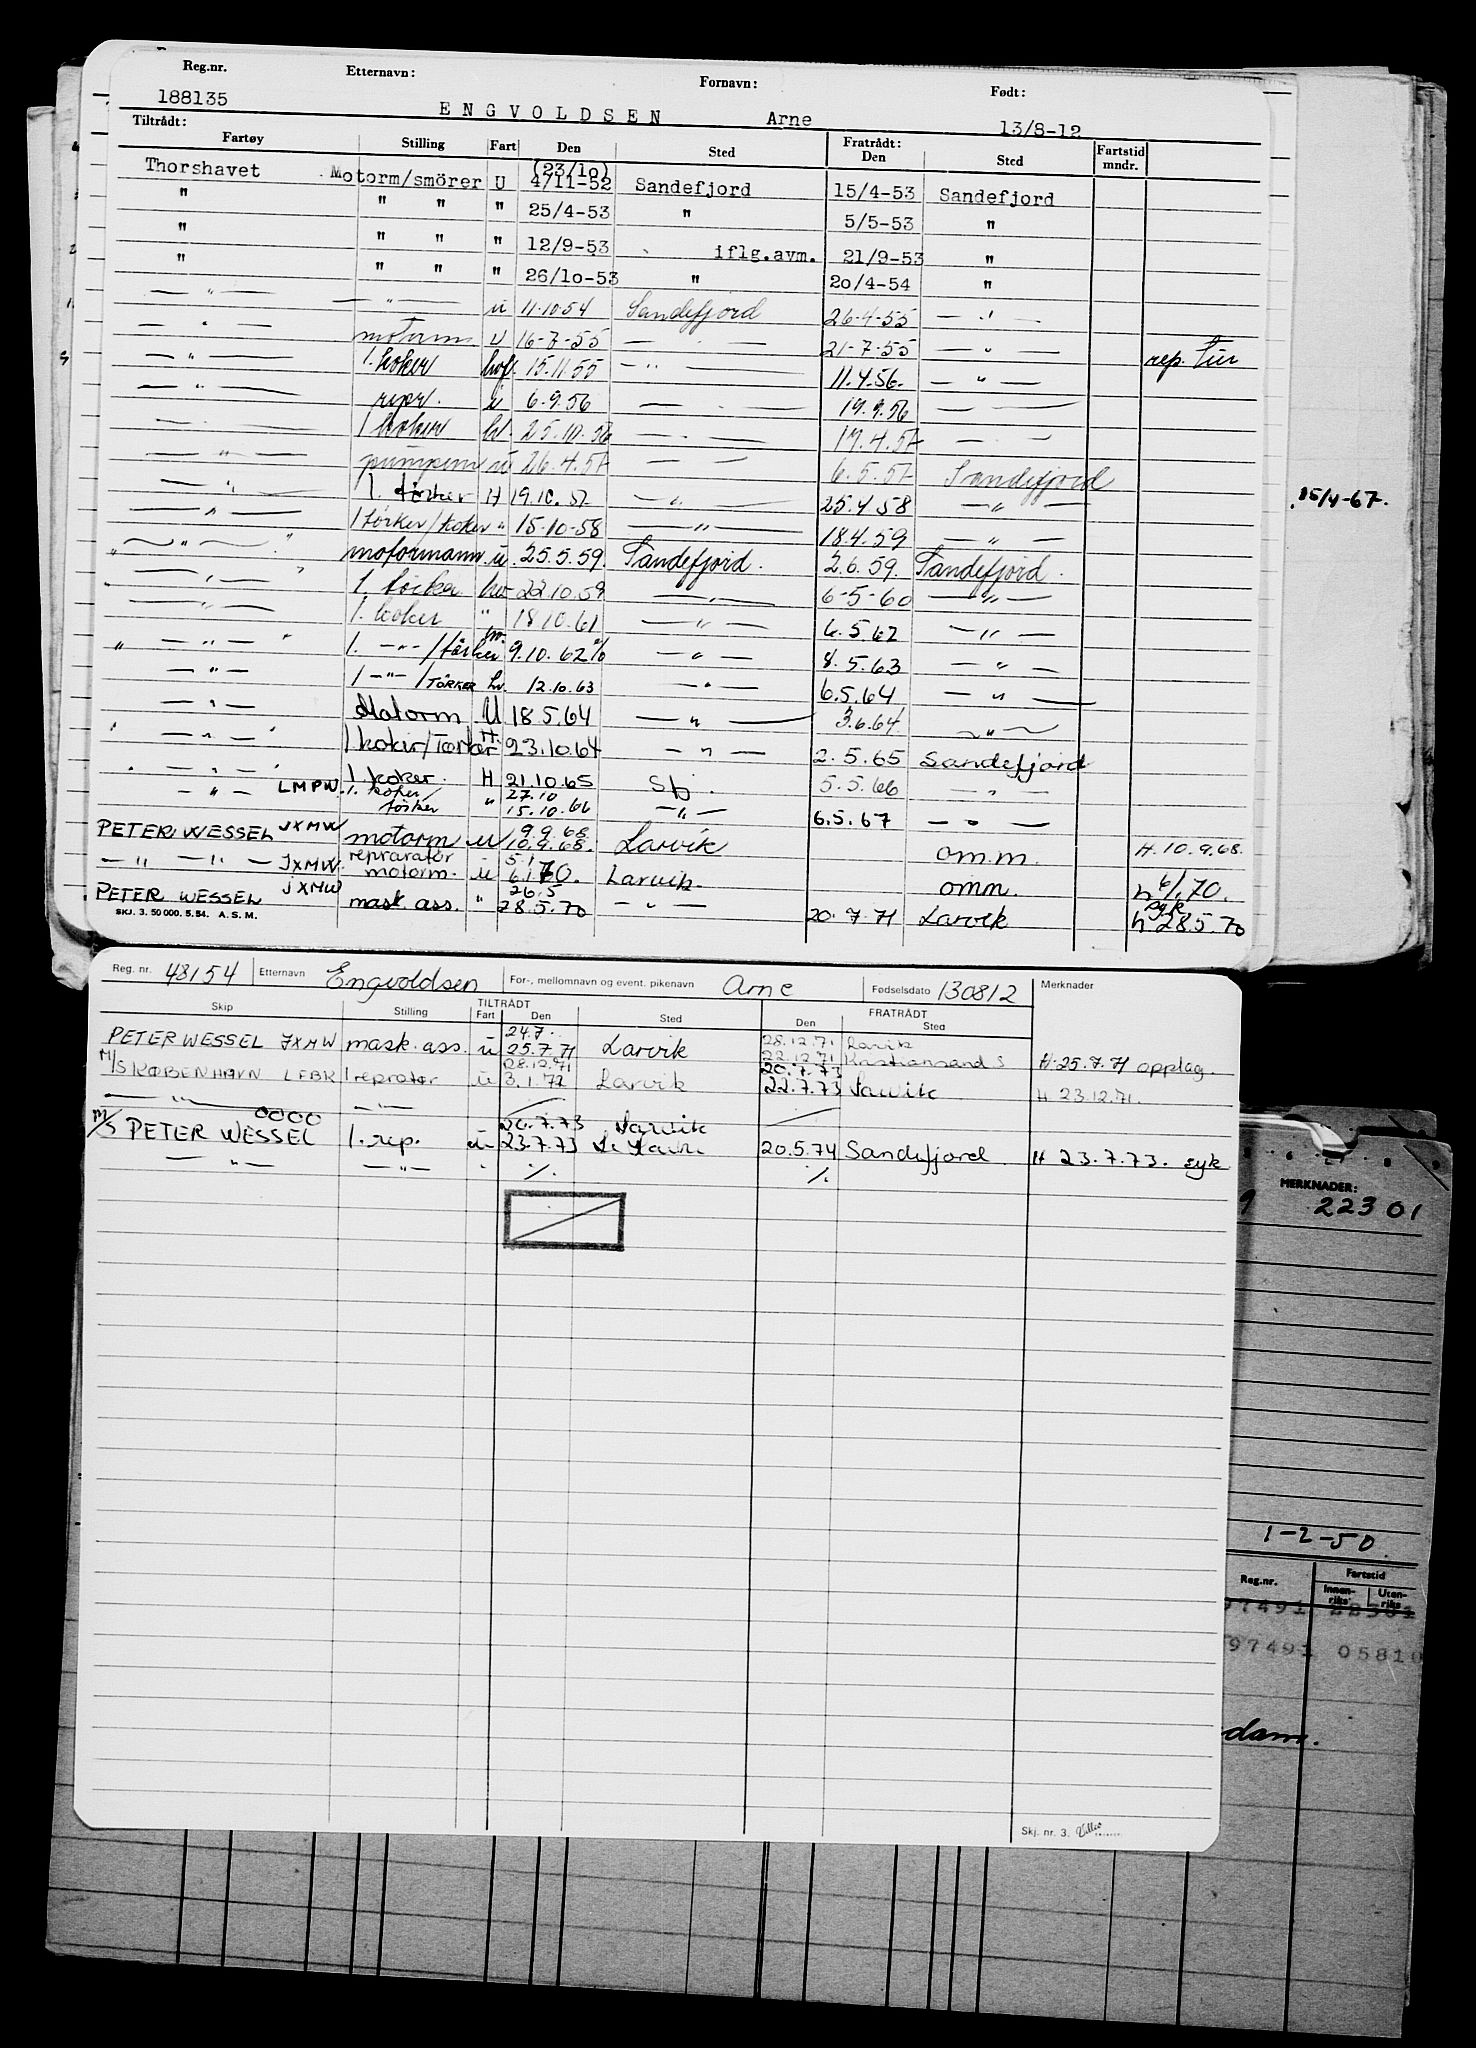 Reg.nr. Etternavn: Fornavn: Født:
188135 ENGVOLDSEN Arne 13/8-12
Tiltrådt: Fratrådt:
Fartøy Stilling Fart Den Sted Den Sted Fartstid mndr.
(23/10)
Thorshavet Motorm/smörer U 4/11-52 Sandefjord 15/4-53 Sandefjord
" " " " 25/4-53 " 5/5-53 "
" " " " 12/9-53 iflg.avm. 21/9-53 "
" " " " 26/10-53 " 20/4-54 "
— " — — " — u 11.10.54 Sandefjord 26.4-55 — " —
— " — motorm u 16-7-55 — " — 21-7-55 — " — rep. tur
— " — 1. koker hvf. 15.11.55 — " — 11.4.56. — " —
— " — repr. u 6.9.56 — " — 19.9.56 — " —
— " — 1 koker hv. 25.10.56 — " — 17.4.57 — " —
— " — pumpem u 26.4.57 — " — 6.5.57 Sandefjord
— " — 1. tørker H 19.10.57 — " — 25.4.58 — " — 15/4-67.
— " — 1 törker/koker " 15-10-58 — " — 18.4.59 — " —
" — " — " motormann u. 25.5.59. Sandefjord. 2.6.59. Sandefjord.
— " — 1. törker hv 22.10.59 — " — 6-5-60 — " —
— " — 1. koker " 18.10.61 — " — 6.5.62 — " —
" — " — " 1. — " — /törker hv. 9.10.62 — " — 8.5.63 — " —
— " — 1 — " — /TÖRKER hv. 12.10.63 — " — 6.5.64 — " —
— " — Matorm U 18.5.64 — " — 3.6.64 — " —
— " — 1 koker/Törker H. 23.10.64 — " — 2.5.65 Sandefjord
— " — 1. koker. H 21.10.65 Sfj. 5.5.66 — " —
— " — LMPW. 1. koker/ törker " 27.10 15.10.66 — " — 6.5.67 — " —
PETER WESSEL JXMW motorm u 9.9.68 10.9.68. Larvik omm. H.10.9.68.
— " — — " — JXMW. reprarator motorm. u 5.1 6.1.70. Larvik. omm. h 6/1.70.
PETER WESSEL JXMW mask. ass. " 26.5 28.5.70 — " — 20.7.71 Larvik syk h 28.5.70
SKJ. 3. 50 000. 5.54. A.S.M.
Reg. nr. 48154 Etternavn Engvoldsen For-, mellomnavn og event. pikenavn Arne Fødselsdato 130812 Merknader
TILTRÅDT FRATRÅDT
Skip Stilling Fart Den Sted Den Sted
PETER WESSEL JXMW mask. ass. u 24.7. 25.7.71 Larvik 28.12.71 Larvik 22.12.71 Kristiansand S H 25.7.71 opplag.
M/S KØBENHAVN LFBK 1 reprator u 28.12.71 3.1.72 Larvik 20.7.73 22.7.73 Larvik H 23.12.71.
— " — — " —
M/S PETER WESSEL 1. rep. u 20.7.73 23.7.73 Larvik 20.5.74 Sandefjord H 23.7.73. syk
— " — — " — " ./. ./.
MERKNADER:
22301
1-2-50.
Reg.nr. Fartstid
Innenriks Utenriks
97491 22301
97491 05810
dam.
Skj. nr. 3.